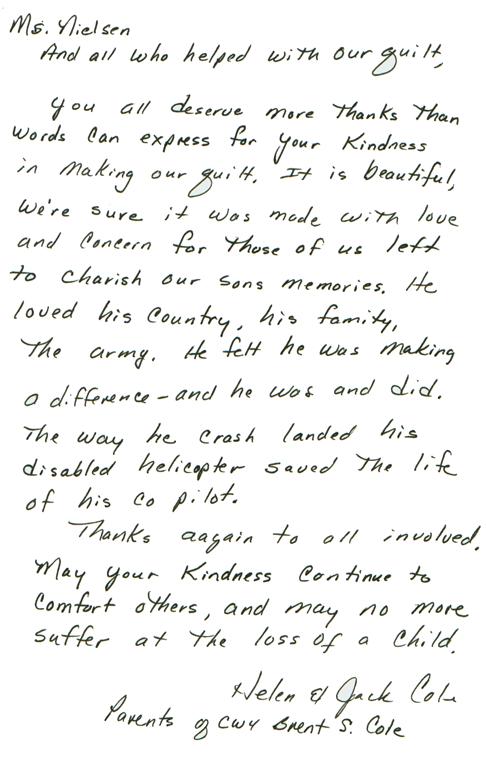 Ms. Nielsen
And all who helped with our quilt,
You all deserve more Thanks Than
words can express for your Kindness
in making our quilt. It is beautiful,
we're sure it was made with love
and concern for those of us left
to charish our sons memories. He
loved his Country, his family,
The army. He felt he was making
a difference - and he was and did.
The way he crash landed his
disabled helicopter saved The life
of his co pilot.
Thanks aagain to all involved.
May your Kindness continue to
comfort others, and may no more
suffer at the loss of a child.
Helen & Jack Cole
Parents of CW4 Brent S. Cole